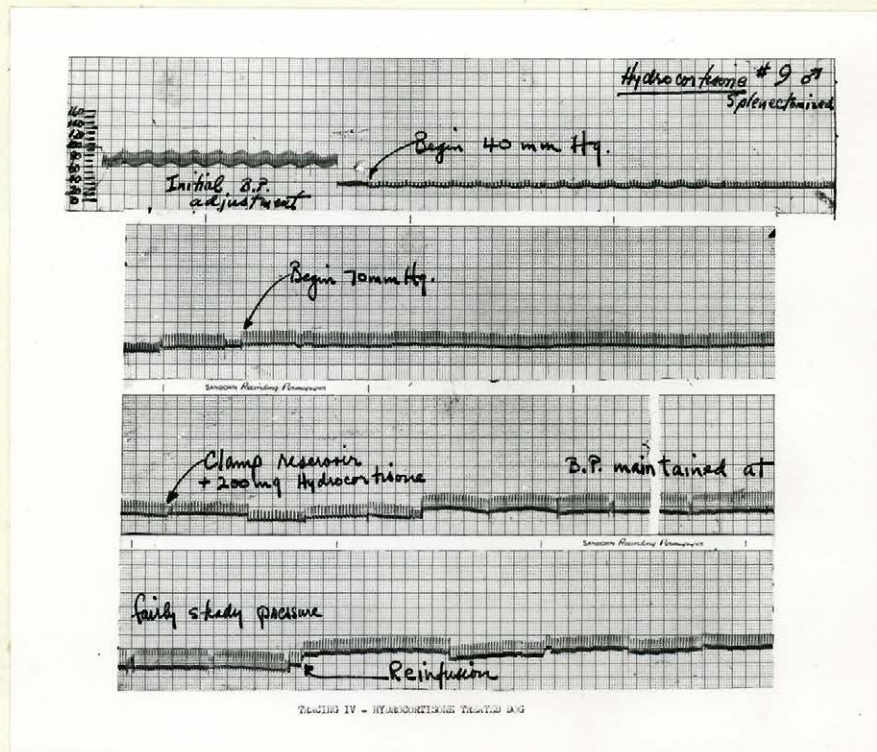 Hydrocortisone #9 ♂
Splenectomized
160
Begin 40 mm Hg.
Initial B.P.
adjustment
Begin 70mm Hg.
SANBORN Recording Permapaper
Clamp reservoir
+ 200 mg Hydrocortisone
B.P. maintained at
SANBORN Recording Permapaper
fairly steady pressure
Reinfusion
TRACING IV - HYDROCORTISONE TREATED DOG